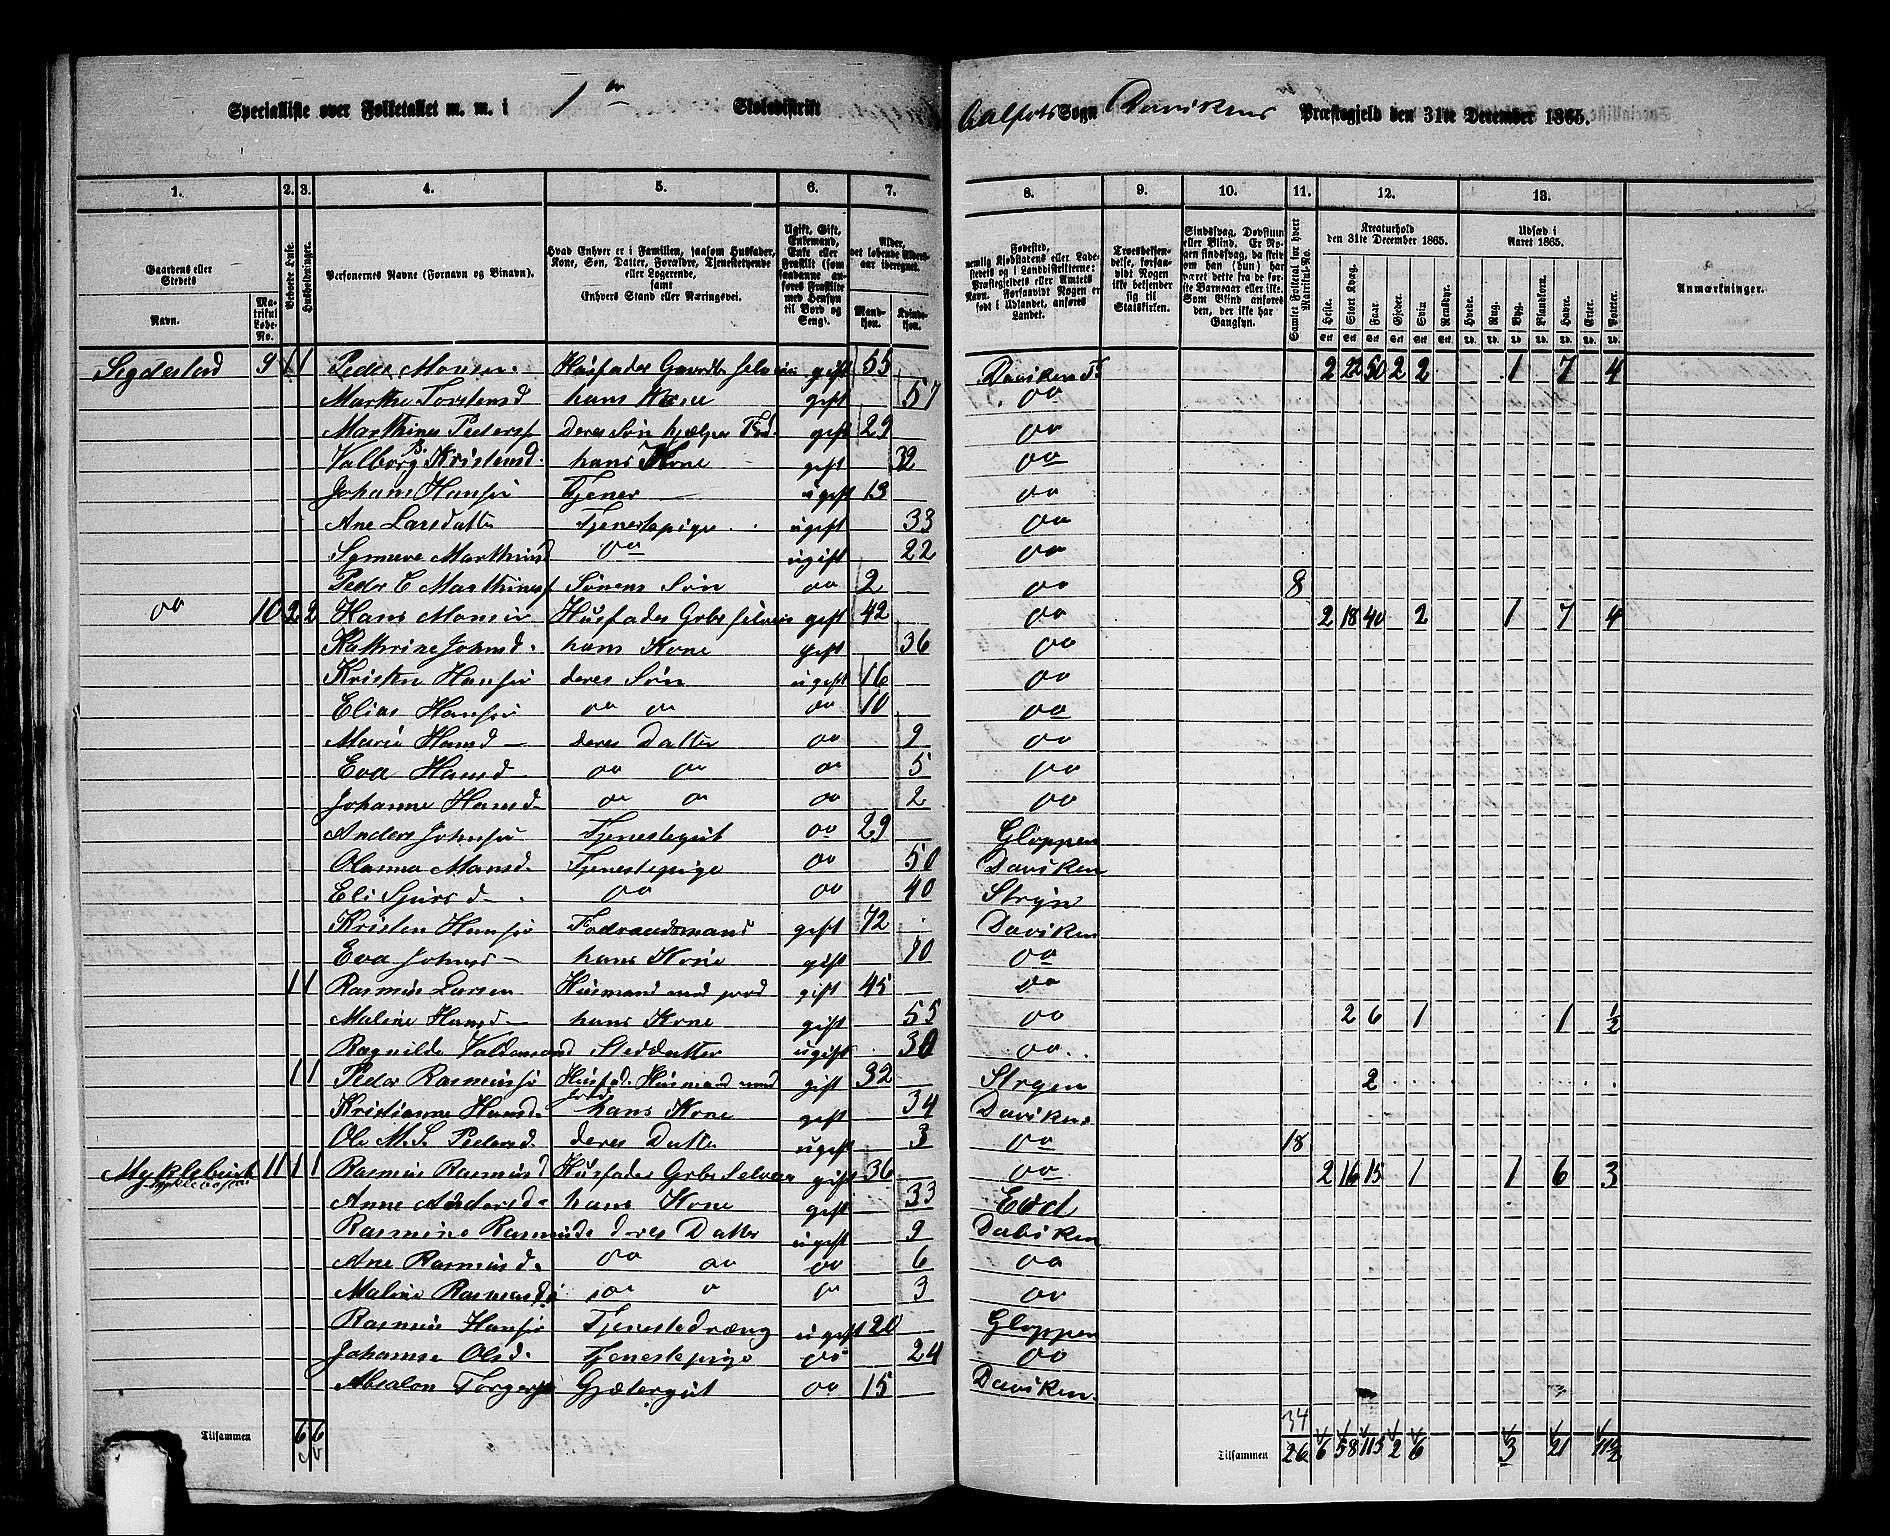 Specialliste over Folketallet m. m. i 1ste Skoledistrikt Aalfots Sogn Davikens Præstegjeld den 31te December 1865.
1. 2. 3. 4. 5. 6. 7. 8. 9. 10. 11. 12. 13.
Gaardens eller Stedets Navn. Matrikul Løbe-No. Beboede Huse. Husholdninger. Personernes Navne (Fornavn og Binavn). Hvad Enhver er i Familien, saasom Husfader, Kone, Søn, Datter, Forældre, Tjenestetyende eller Logerende, samt Enhvers Stand eller Næringsvei. Ugift, Gift, Enkemand, Enke eller Fraskilt (som saadanne anføres Fraskilte med Hensyn til Bord og Seng). Alder, det løbende Alders-aar iberegnet. Mandkjøn. Kvindekjøn. Fødested, Troesbekjendelse, forsaavidt Nogen ikke bekjender sig til Statskirken. Sindssvag, Døvstum eller Blind. Samlet Folketal for hvert Matrikul-No. Kreaturhold den 31te December 1865. Udsæd i Aaret 1865. Anmærkninger.
Heste. Stort Kvæg. Faar. Gjeder. Svin. Rensdyr. Hvede. Rug. Byg. Blandkorn. Havre. Erter. Poteter.
Sigdestad 9 1 1 Peder Monsen Husfader Gaardbr Selveier gift 55 Daviken 2 22 50 2 2 1 7 4
Marthe Torstensd hans Kone gift 57 do
Marthines Peders. deres Søn hjælper Fad. gift 29 do
Valborg Kristensd. hans Kone gift 32 do
Johans Hansen Tjener ugift 13 do
Ane Larsdatter Tjenestepige ugift 33 do
Marthinsd do ugift 22 do
Peder C Marthines. Sønens Søn do 2 do 8
do 10 2 2 Hans Monsen Husfader Grbr Selveier gift 42 do 2 18 40 2 1 7 4
Kathrine Johnsd. hans Kone gift 36 do
Kristen Hansen deres Søn ugift 16 do
Elias Hansen do do do 10 do
Marie Hansd deres Datter do 9 do
Eva Hansd do do do 5 do
Johanne Hansd do do do 2 do
Anders Johnsen Tjenestegut do 29 Gloppen
Olasma Monsd. Tjenestepige do 50 Daviken
Eli Sjursd do do 40 Stryn
Kristen Hansen Foderaadsmand gift 72 Daviken
Eva Johnsd hans Kone gift 70 do
1 1 Rasmus Larsen Husmand med jord gift 45 do
Maline Hansd hans Kone gift 55 do 2 6 1 1 ½
Ragnilde Valdemarsd Steddatter ugift 30 do
1 1 Peder Rasmusen Husfad. Husmand med jord gift 32 Stryen 2
Kristianne Hansd. hans Kone gift 34 Daviken
Ole M. S. Pedersd. deres Datter ugift 3 do 18
Myklebust 11 1 1 Rasmus Rasmusen Husfader Grbr Selveier gift 36 do 2 16 15 1 1 6 3
Anne Andersd. hans Kone gift 33 Eid
Rasmine Rasmusd. deres Datter ugift 9 Daviken
Ane Rasmusd. do do do 6 do
Maline Rasmusd. do do do 3 do
Rasmus Hansen Tjenestedræng ugift 20 Gloppen
Johanne Olsd. Tjenestepige do 24 do
Absalon Torgersen Gjætergut do 15 Daviken
34
Tilsammen 6 6 Tilsammen 26 6 58 115 2 6 3 21 11½